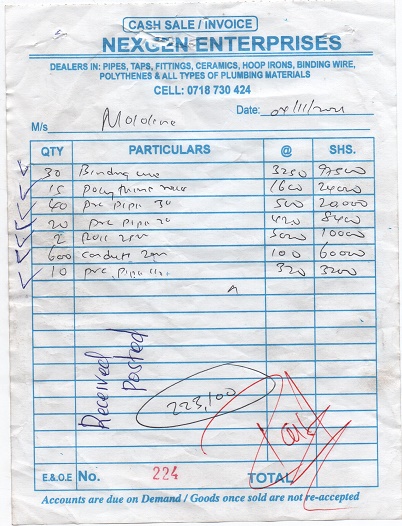 CASH SALE / INVOICE
NEXGEN ENTERPRISES
DEALERS IN: PIPES, TAPS, FITTINGS, CERAMICS, HOOP IRONS, BINDING WIRE,
POLYTHENES & ALL TYPES OF PLUMBING MATERIALS
CELL: 0718 730 424
Date:
M/s
QTY PARTICULARS @ SHS.
30 Binding wire 3250 97500
15 polythene 1600 24000
40 pvc pipe 500 20,000
20 pvc pipe 20 420 8400
2 Roll 25m 5000 10000
600 conduit 100 60000
10 pvc pipe 320 3200
Received
Posted
223,100
E.&O.E No. 224 TOTAL
Accounts are due on Demand / Goods once sold are not re-accepted